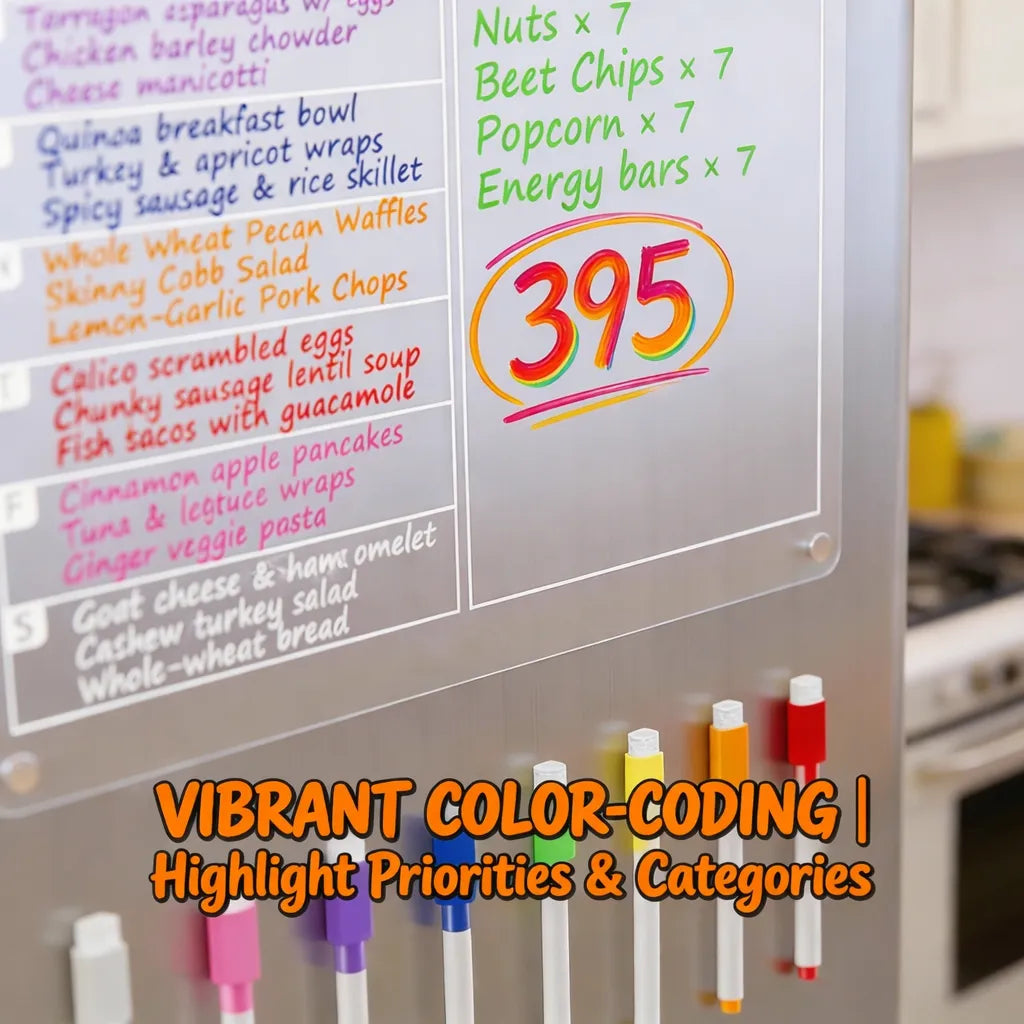 Tarragon asparagus w/ eggs
Chicken barley chowder
Cheese manicotti
Quinoa breakfast bowl
Turkey & apricot wraps
Spicy sausage & rice skillet
Whole Wheat Pecan Waffles
Skinny Cobb Salad
Lemon-Garlic Pork Chops
T
Calico scrambled eggs
Chunky sausage lentil soup
Fish tacos with guacamole
F
Cinnamon apple pancakes
Tuna & legtuce wraps
Ginger veggie pasta
S
Goat cheese & ham omelet
Cashew turkey salad
Whole-wheat bread
Nuts x 7
Beet Chips x 7
Popcorn x 7
Energy bars x 7
395
VIBRANT COLOR-CODING |
Highlight Priorities & Categories